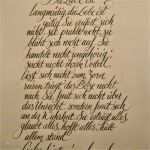 Die Liebe ist
langmütig, die Liebe ist
gütig. Sie ereifert sich
nicht, sie prahlt nicht, sie
bläht sich nicht auf. Sie
handelt nicht ungehörig,
sucht nicht ihren Vorteil,
lässt sich nicht zum Zorn
reizen, trägt das Böse nicht
nach. Sie freut sich nicht über
das Unrecht, sondern freut sich
an der Wahrheit. Sie erträgt alles,
glaubt alles, hofft alles, hält
allem stand.